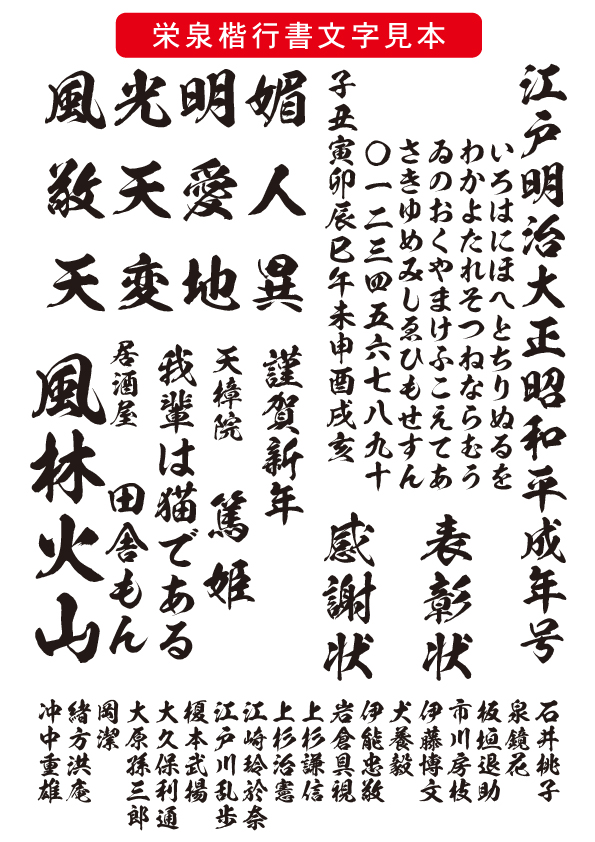 栄泉楷行書文字見本
江戸明治大正昭和平成年号
いろはにほへとちりぬるを
わかよたれそつねならむう
ゐのおくやまけふこえてあ
さきゆめみしゑひもせすん
〇一二三四五六七八九十
子丑寅卯辰巳午未申酉戌亥
表彰状
感謝状
風光明媚
敬天愛人
天変地異
謹賀新年
天樟院 篤姫
我輩は猫である
居酒屋 田舎もん
風林火山
石井桃子
泉鏡花
板垣退助
市川房枝
伊藤博文
犬養毅
伊能忠敬
岩倉具視
上杉謙信
上杉治憲
江崎玲於奈
江戸川乱歩
榎本武揚
大久保利通
大原孫三郎
岡潔
緒方洪庵
冲中重雄